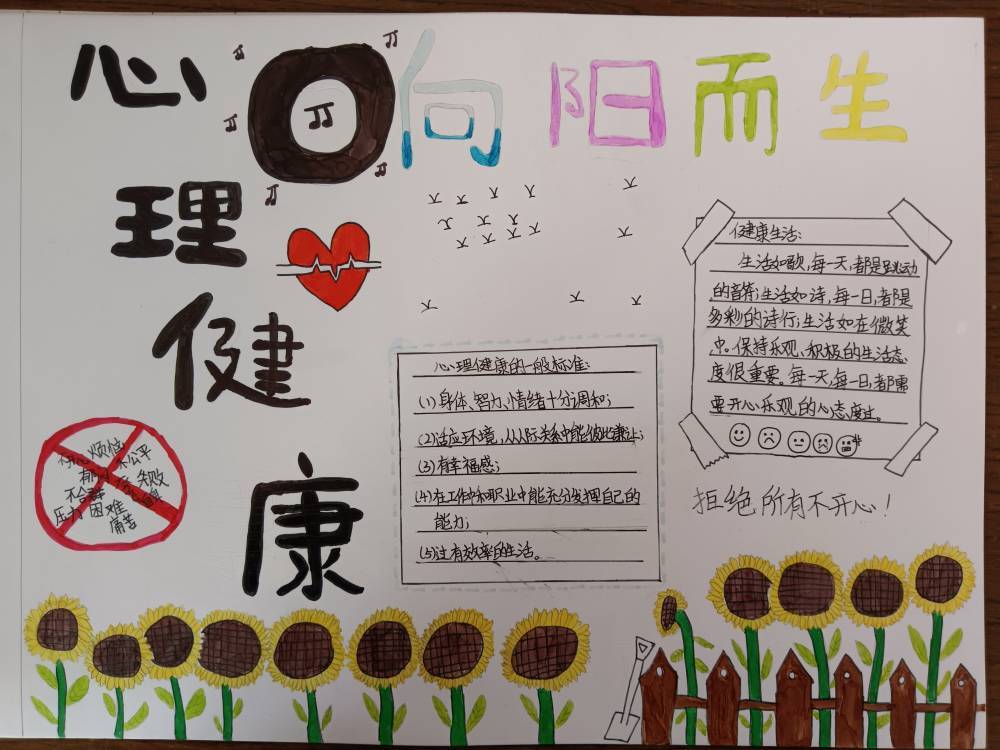 心向阳而生
理
健
康
健康生活:
生活如歌,每一天,都是跳动
的音符;生活如诗,每一日,都是
多彩的诗行;生活如在微笑
中。保持乐观、积极的生活态
度很重要。每一天,每一日,都需
要开心乐观的心态度过。
拒绝所有不开心!
心理健康的一般标准:
(1)身体、智力、情绪十分调和;
(2)适应环境,人际关系中能彼此谦让;
(3)有幸福感;
(4)在工作中和职业中能充分发挥自己的
能力;
(5)过有效率的生活。
不开心 烦恼
不公平
不合群 失败
压力 困难
痛苦